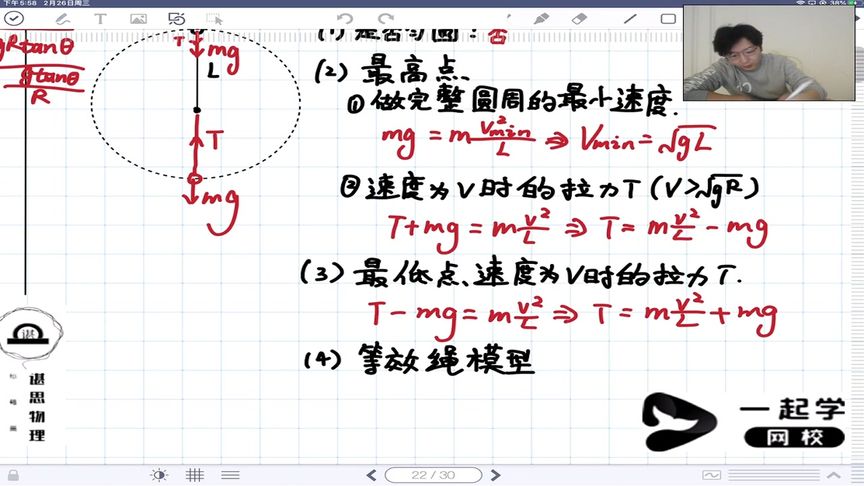 下午5:58 2月26日周三
38%
gRtanθ
gtanθ
R
T
mg
L
T
mg
(1) 是否匀圆：否
(2) 最高点
① 做完整圆周的最小速度.
mg = m v²min/L ⇒ Vmin = √gL
② 速度为V时的拉力T (V>√gR)
T+mg = m v²/L ⇒ T = m v²/L - mg
(3) 最低点、速度为V时的拉力T.
T - mg = m v²/L ⇒ T = m v²/L + mg
(4) 等效绳模型
谌思物理
一起学
网校
22 / 30